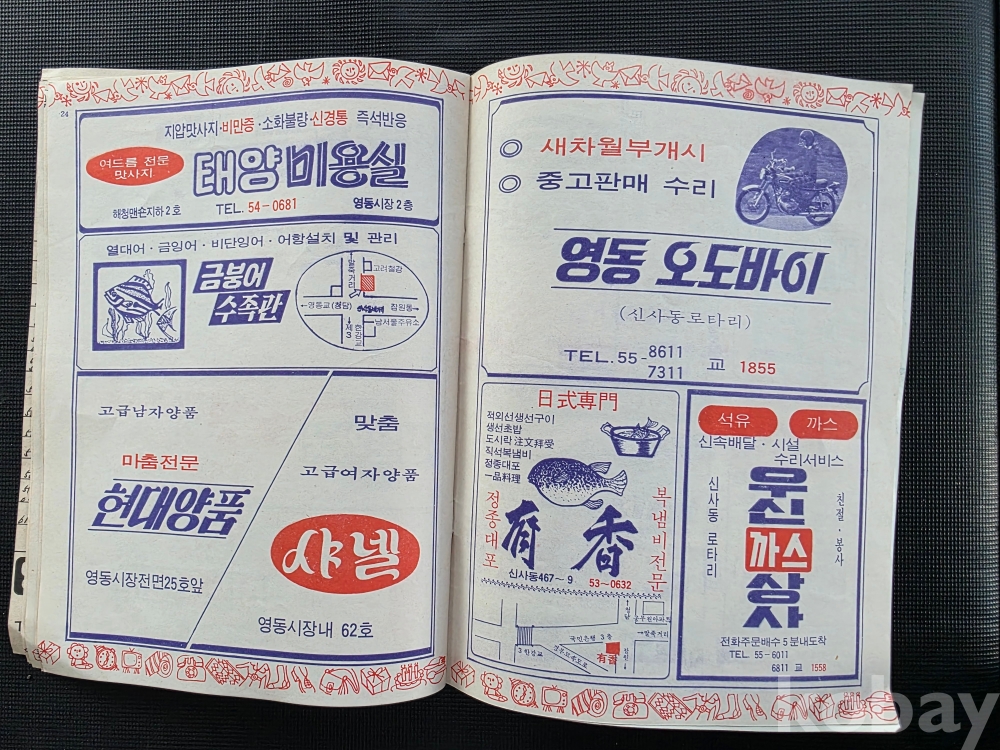 24
지압맛사지·비만증·소화불량·신경통 즉석반응
여드름 전문
맛사지
태양미용실
해청맨숀지하 2호
TEL. 54-0681
영동시장 2층
열대어·금잉어·비단잉어·어항설치 및 관리
금붕어
수족관
고려철강
←영동교(청담)
잠원동→
남서울주유소
제3한강교
고급남자양품
마춤전문
현대양품
영동시장전면25호앞
맞춤
고급여자양품
샤넬
영동시장내 62호
◎ 새차월부개시
◎ 중고판매 수리
영동 오도바이
(신사동로타리)
TEL. 55-8611
7311
교 1855
日式専門
적외선생선구이
생선초밥
도시락 注文拜受
직석복냄비
정종대포
一品料理
정종대포
복냄비전문
有香
신사동467~9
53-0632
국민은행 3층
3한강교
有香
잠원
석유
까스
신속배달·시설
수리서비스
신사동 로타리
우신
까스
상사
친절·봉사
전화주문배수 5분내도착
TEL. 55-6011
6811 교 1558
kobay